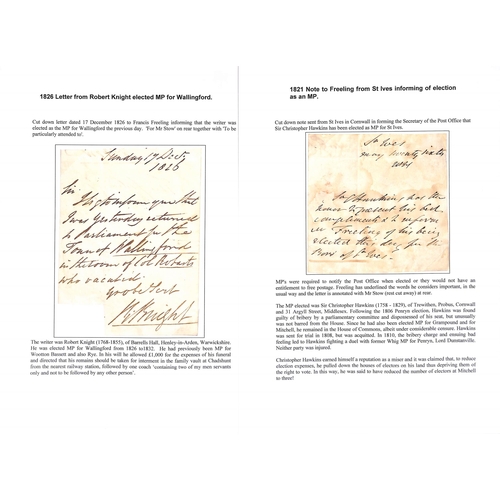 1826 Letter from Robert Knight elected MP for Wallingford.
Cut down letter dated 17 December 1826 to Francis Freeling informing that the writer was
elected as the MP for Wallingford the previous day. 'For Mr Stow' on rear together with 'To be
particularly attended to'.
Sunday 17 Decr
1826
Sir
I beg to inform you that
I was yesterday returned
to Parliament for the
Town of Wallingford
in the room of Col Robarts
who vacated
your obedt Sert
R Knight
The writer was Robert Knight (1768-1855), of Barrells Hall, Henley-in-Arden, Warwickshire.
He was elected MP for Wallingford from 1826 to1832. He had previously been MP for
Wootton Bassett and also Rye. In his will he allowed £1,000 for the expenses of his funeral
and directed that his remains should be taken for interment in the family vault at Chadshunt
from the nearest railway station, followed by one coach 'containing two of my men servants
only and not to be followed by any other person'.
1821 Note to Freeling from St Ives informing of election
as an MP.
Cut down note sent from St Ives in Cornwall in forming the Secretary of the Post Office that
Sir Christopher Hawkins has been elected as MP for St Ives.
St Ives
may twenty sixth
1821
Sir C Hawkins has the
honor to present his best
compliments & to inform
Mr Freeling of his being
elected this day for the
Boro' of St Ives
MP's were required to notify the Post Office when elected or they would not have an
entitlement to free postage. Freeling has underlined the words he considers important, in the
usual way and the letter is annotated with Mr Stow (not cut away) at rear.
The MP elected was Sir Christopher Hawkins (1758 - 1829), of Trewithen, Probus, Cornwall
and 31 Argyll Street, Middlesex. Following the 1806 Penryn election, Hawkins was found
guilty of bribery by a parliamentary committee and dispossessed of his seat, but unusually
was not barred from the House. Since he had also been elected MP for Grampound and for
Mitchell, he remained in the House of Commons, albeit under considerable censure. Hawkins
was sent for trial in 1808, but was acquitted. In 1810, the bribery charge and ensuing bad
feeling led to Hawkins fighting a duel with former Whig MP for Penryn, Lord Dunstanville.
Neither party was injured.
Christopher Hawkins earned himself a reputation as a miser and it was claimed that, to reduce
election expenses, he pulled down the houses of electors on his land thus depriving them of
the right to vote. In this way, he was said to have reduced the number of electors at Mitchell
to three!